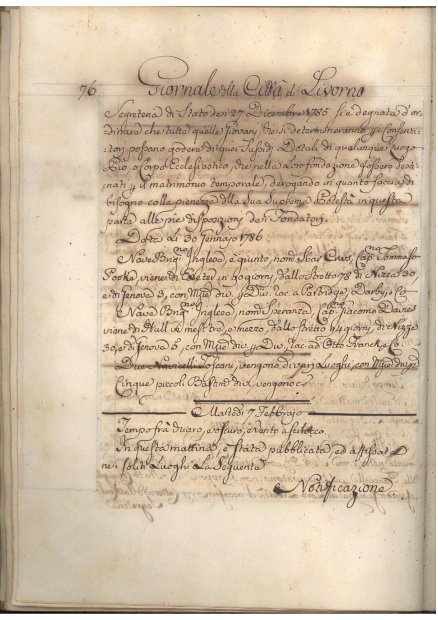 76 Giornale della Città di Livorno
Segreteria di Stato de 27 Dicembre 1785 si è degnata d'or-
dinare che tutte quelle Giovani, che si determineranno
possano godere di quei Sussidj Dotali di qualunque Luogo
Pio, o Corpo Ecclesiastico, che nella loro fondazione fossero desti-
nati il matrimonio temporale, derogando in quanto facia di
bisogno colla pienezza della Sua Suprema Potestà in questa
parte alle pie disposizioni de' Fondatori.
Data li 30 Gennajo 1786
Nave Inglese, è giunto, nom.
viene di Exeter in 40 giorni, dallo Stretto 78 di Nizza 30
e di Genova 3, con
Nave Inglesa, nom. Speranza Cap. Giacomo Davies
viene di Hull in mesi tre, e mezzo, dallo Stretto 44 giorni, di Nizza
30, e di Genova 5, con
Due Navicelli Toscani, vengono di varj Luoghi, con
Cinque piccoli Bastim. vengono
Martedì 7 Febbrajo
Tempo fra duaro, e oscuro, e vento a Scilocco
In questa mattina, è stata pubblicata, ed affissa
nei soliti Luoghi La Seguente
Notificazione